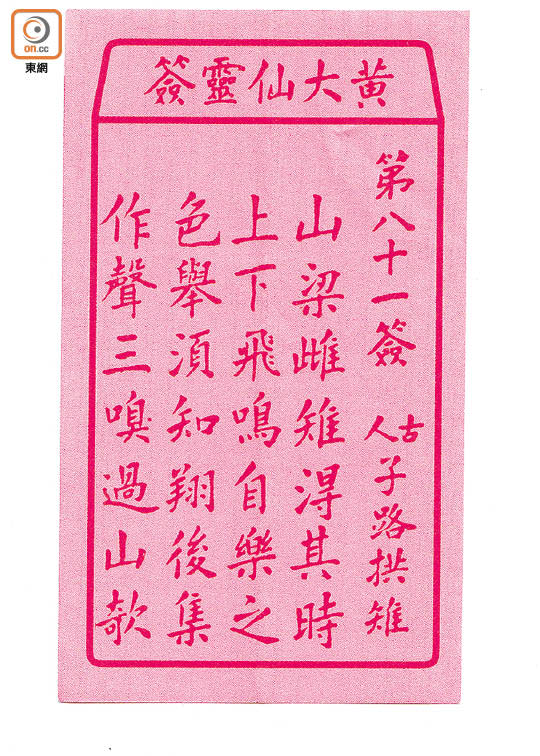 on.cc
東網
黄大仙靈簽
第八十一簽 古人 子路拱雉
山梁雌雉淂其時
上下飛鳴自樂之
色舉湏知翔後集
作聲三嗅過山欹